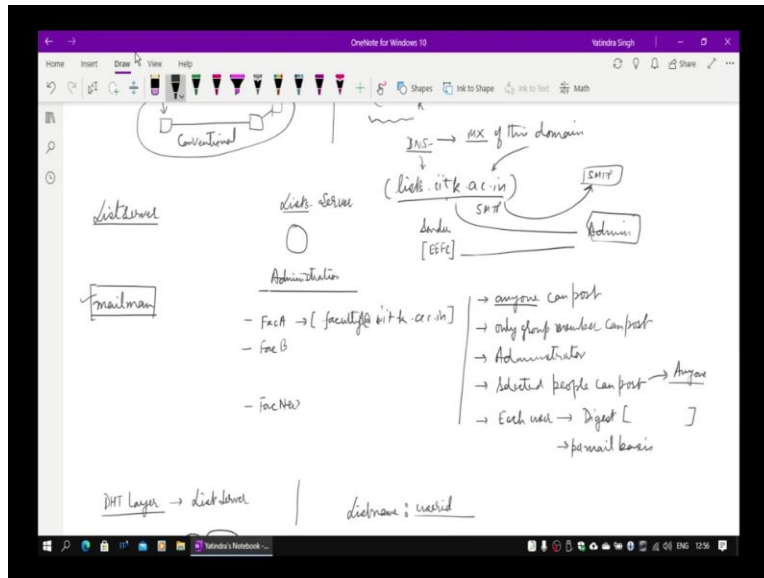 OneNote for Windows 10
Yatindra Singh
Home Insert Draw View Help
Share
Shapes Ink to Shape Ink to Text Math
Conventional
DNS → MX of this domain
(lists.iitk.ac.in)
SMTP
SMTP
ListServer
Lists Server
Sender
[EEFC]
Admin
Administration
mailman
- FacA → [faculty@iitk.ac.in]
- FacB
- FacNew
→ anyone can post
→ only group member can post
→ Administrator
→ Selected people can post → Anyone
→ Each user → Digest [ ]
→ per mail basis
DHT Layer → ListServer
Listname : userid
Yatindra's Notebook -...
ENG 12:56